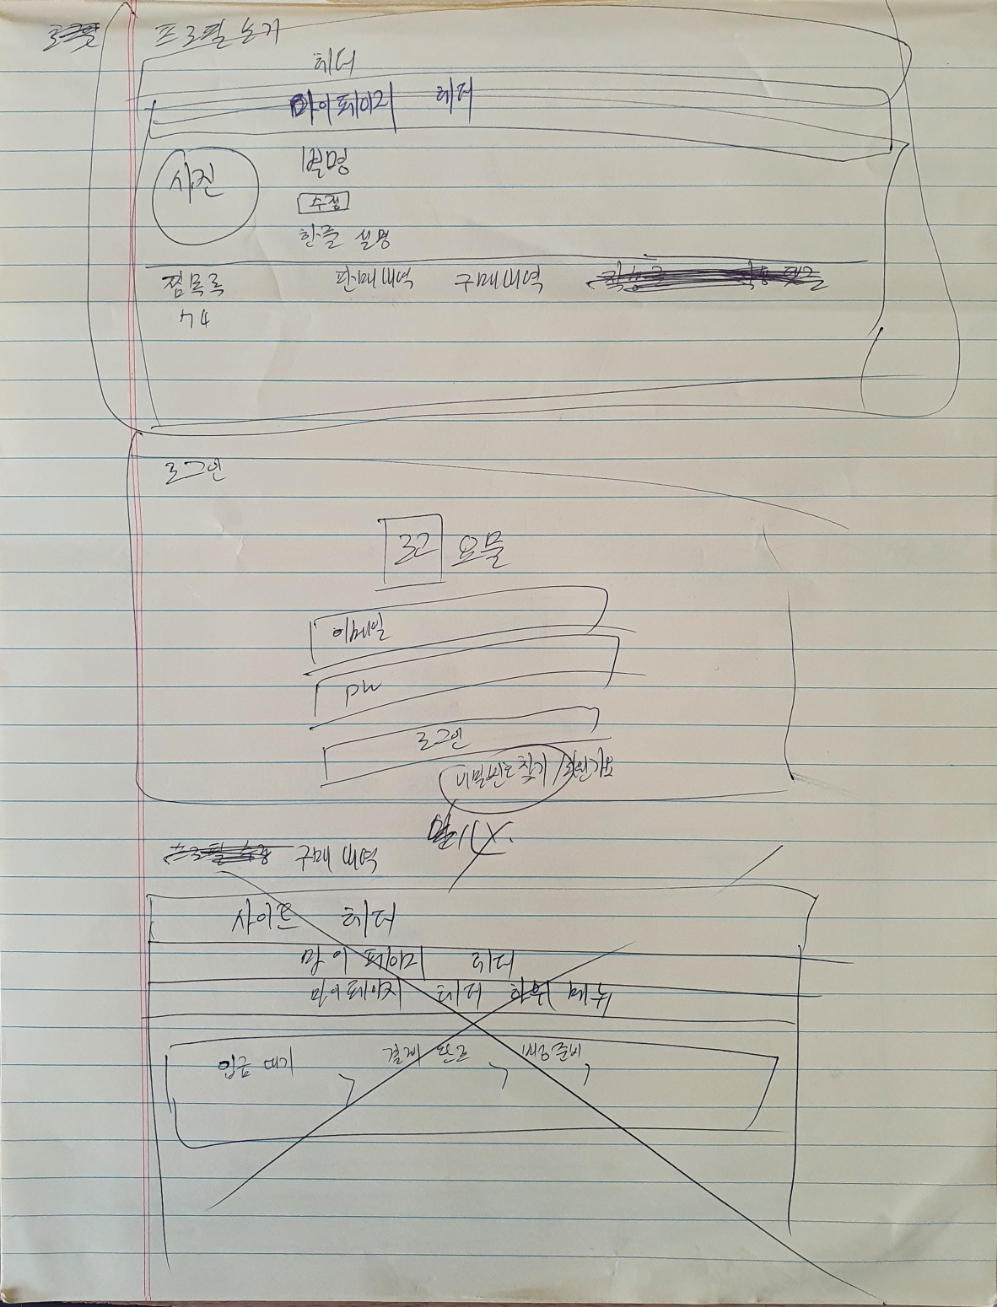 프로필
헤더
마이페이지 헤더
사진
별명
수정
한줄 설명
찜목록 판매내역 구매내역
로그인
로고
이메일
PW
로그인
비밀번호 찾기 / 회원가입
X.
구매내역
사이트 헤더
마이페이지 헤더
마이페이지 헤더 하위 메뉴
입금 대기 결제 완료 배송준비